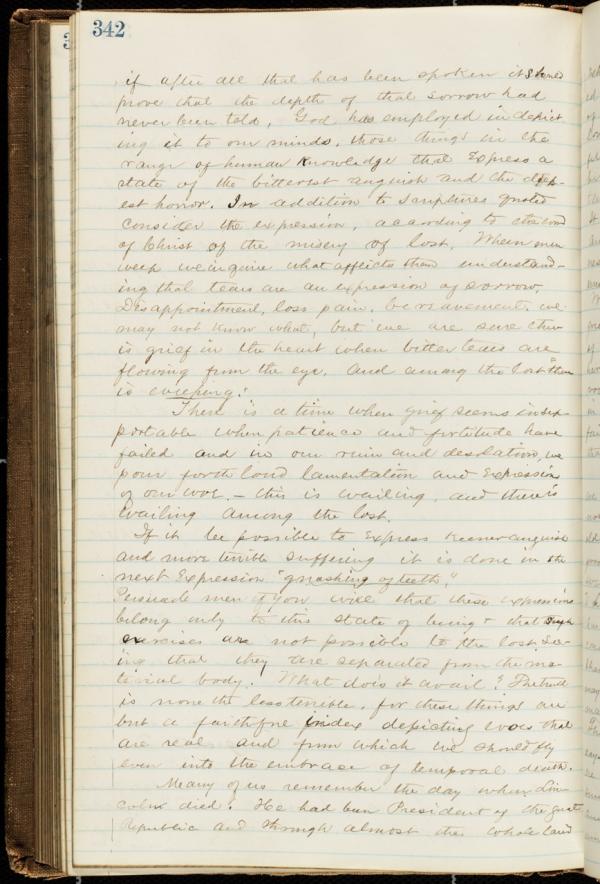 342
if after all that has been spoken it should
prove that the depth of that sorrow had
never been told, God has employed in depict-
ing it to our minds, those things in the
range of human Knowledge that Express a
state of the bitterest anguish and the deep-
est horror. In addition to scriptures quoted
consider the expression, according to the word
of Christ of the misery of lost. When men
weep we inquire what afflicts them understand-
ing that tears are an expression of sorrow,
Disappointment, loss pain, bereavement, we
may not know what, but we are sure there
is grief in the heart when bitter tears are
flowing from the eye. And among the lost "there
is weeping."
There is a time when grief seems insup-
portable when patience and fortitude have
failed and in our ruin and desolation, we
pour forth loud lamentation and Expression
of our woe. – this is wailing, and there is
wailing among the lost.
If it be possible to Express keener anguish
and more terrible suffering it is done in the
next Expression "gnashing of teeth."
Persuade men if you will that these expressions
belong only to this state of being & that such
exercises are not possible to the lost, see-
ing that they are separated from the ma-
terial body. What does it avail? The truth
is none the less terrible, for these things are
but a faithful index depicting woes that
are real and from which we should fly
even into the embrace of temporal death.
Many of us remember the day when Lin-
coln died. He had been President of the great
Republic and through almost the whole land